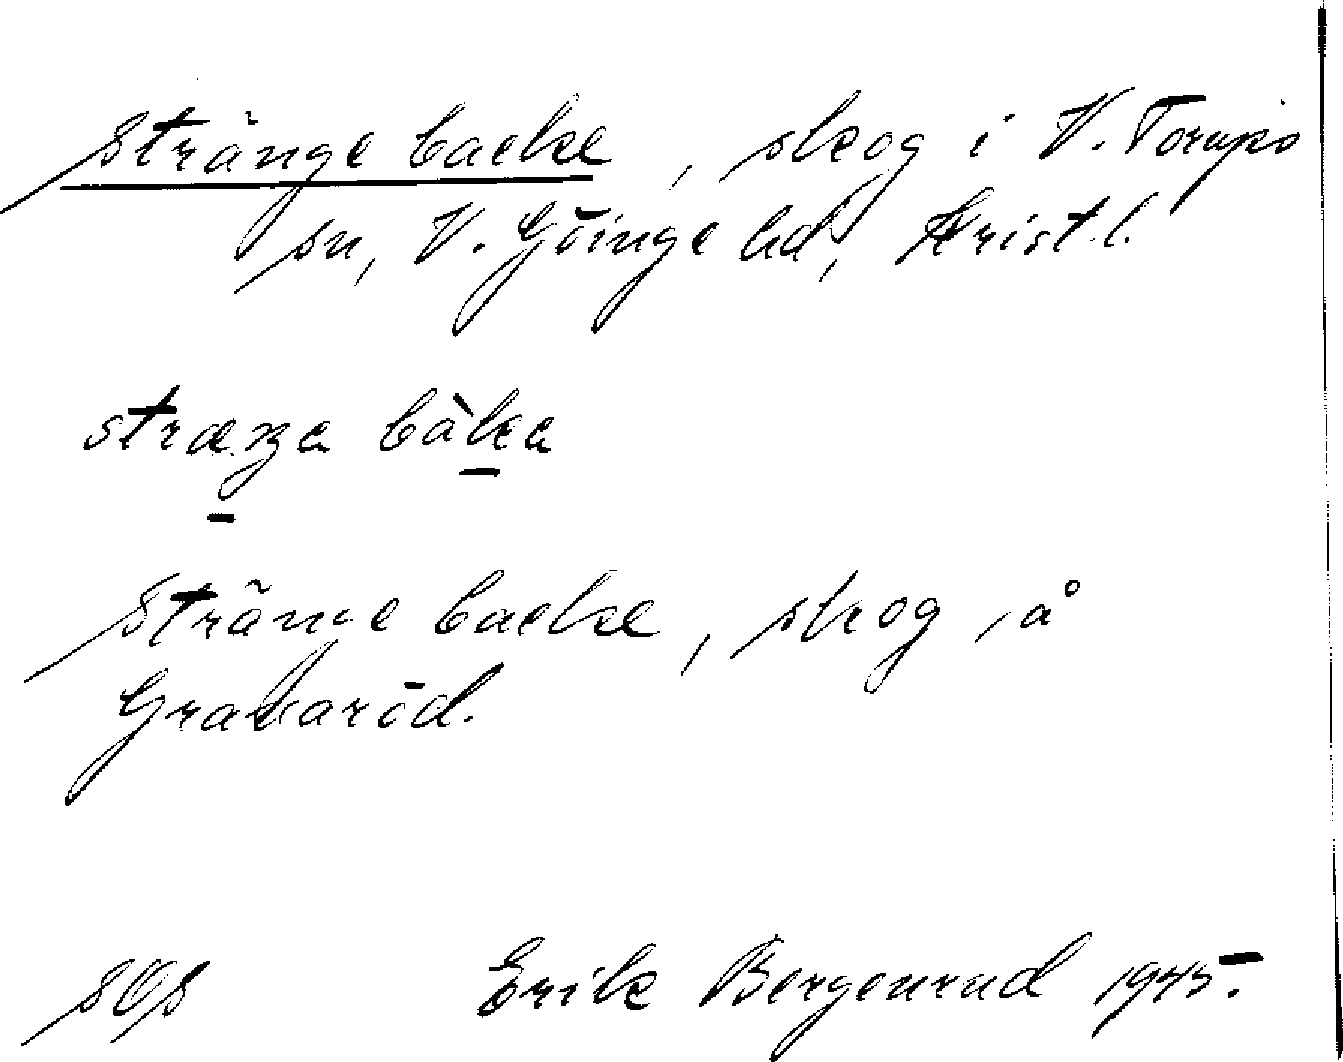 Stränge backe, skog i V. Torups
sn, V. Göinge hd, Krist. l.
stræŋa bàka
Stränge backe, skog å
Gravaröd.
Erik Bergenrud 1945.